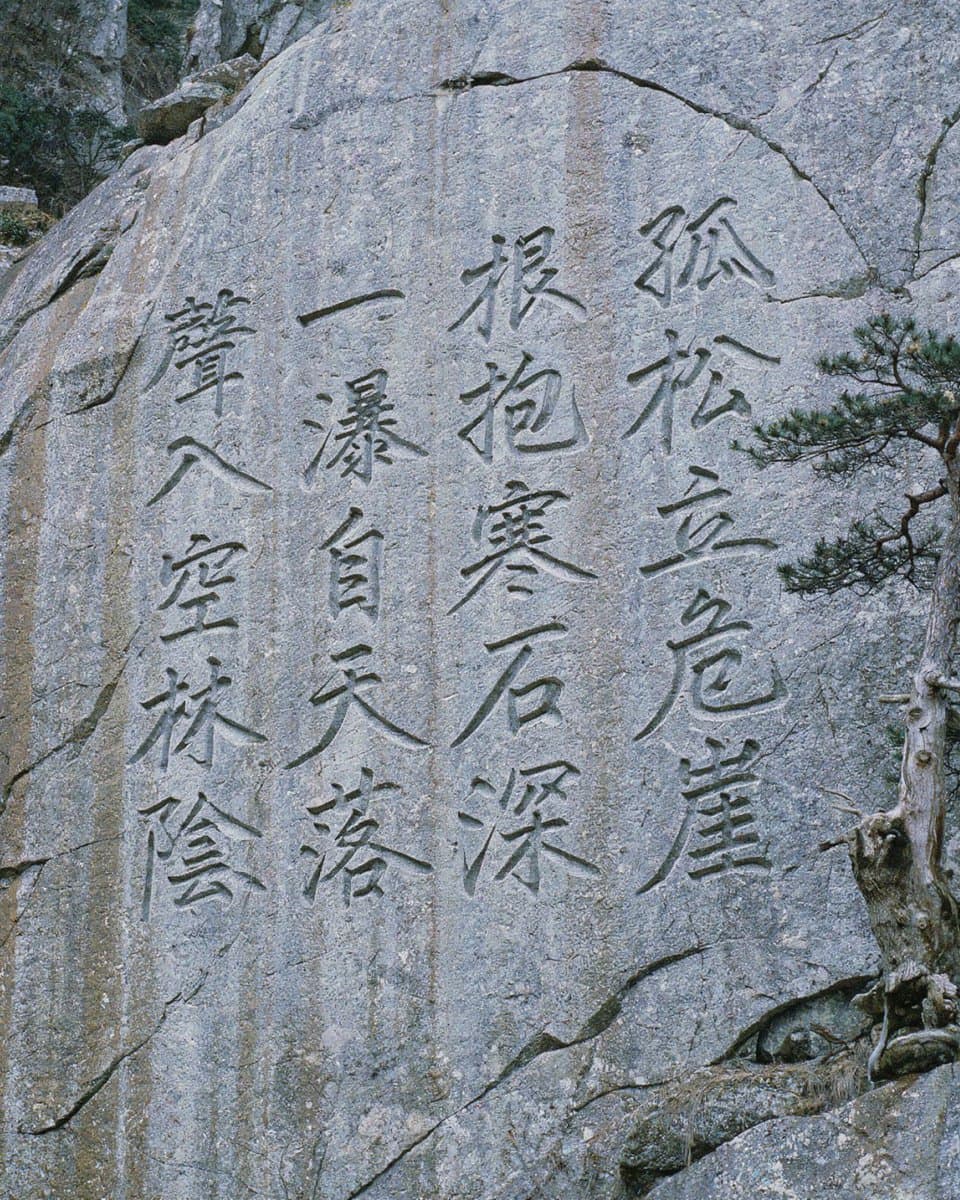 孤松立危崖
根抱寒石深
一瀑自天落
聲入空林陰